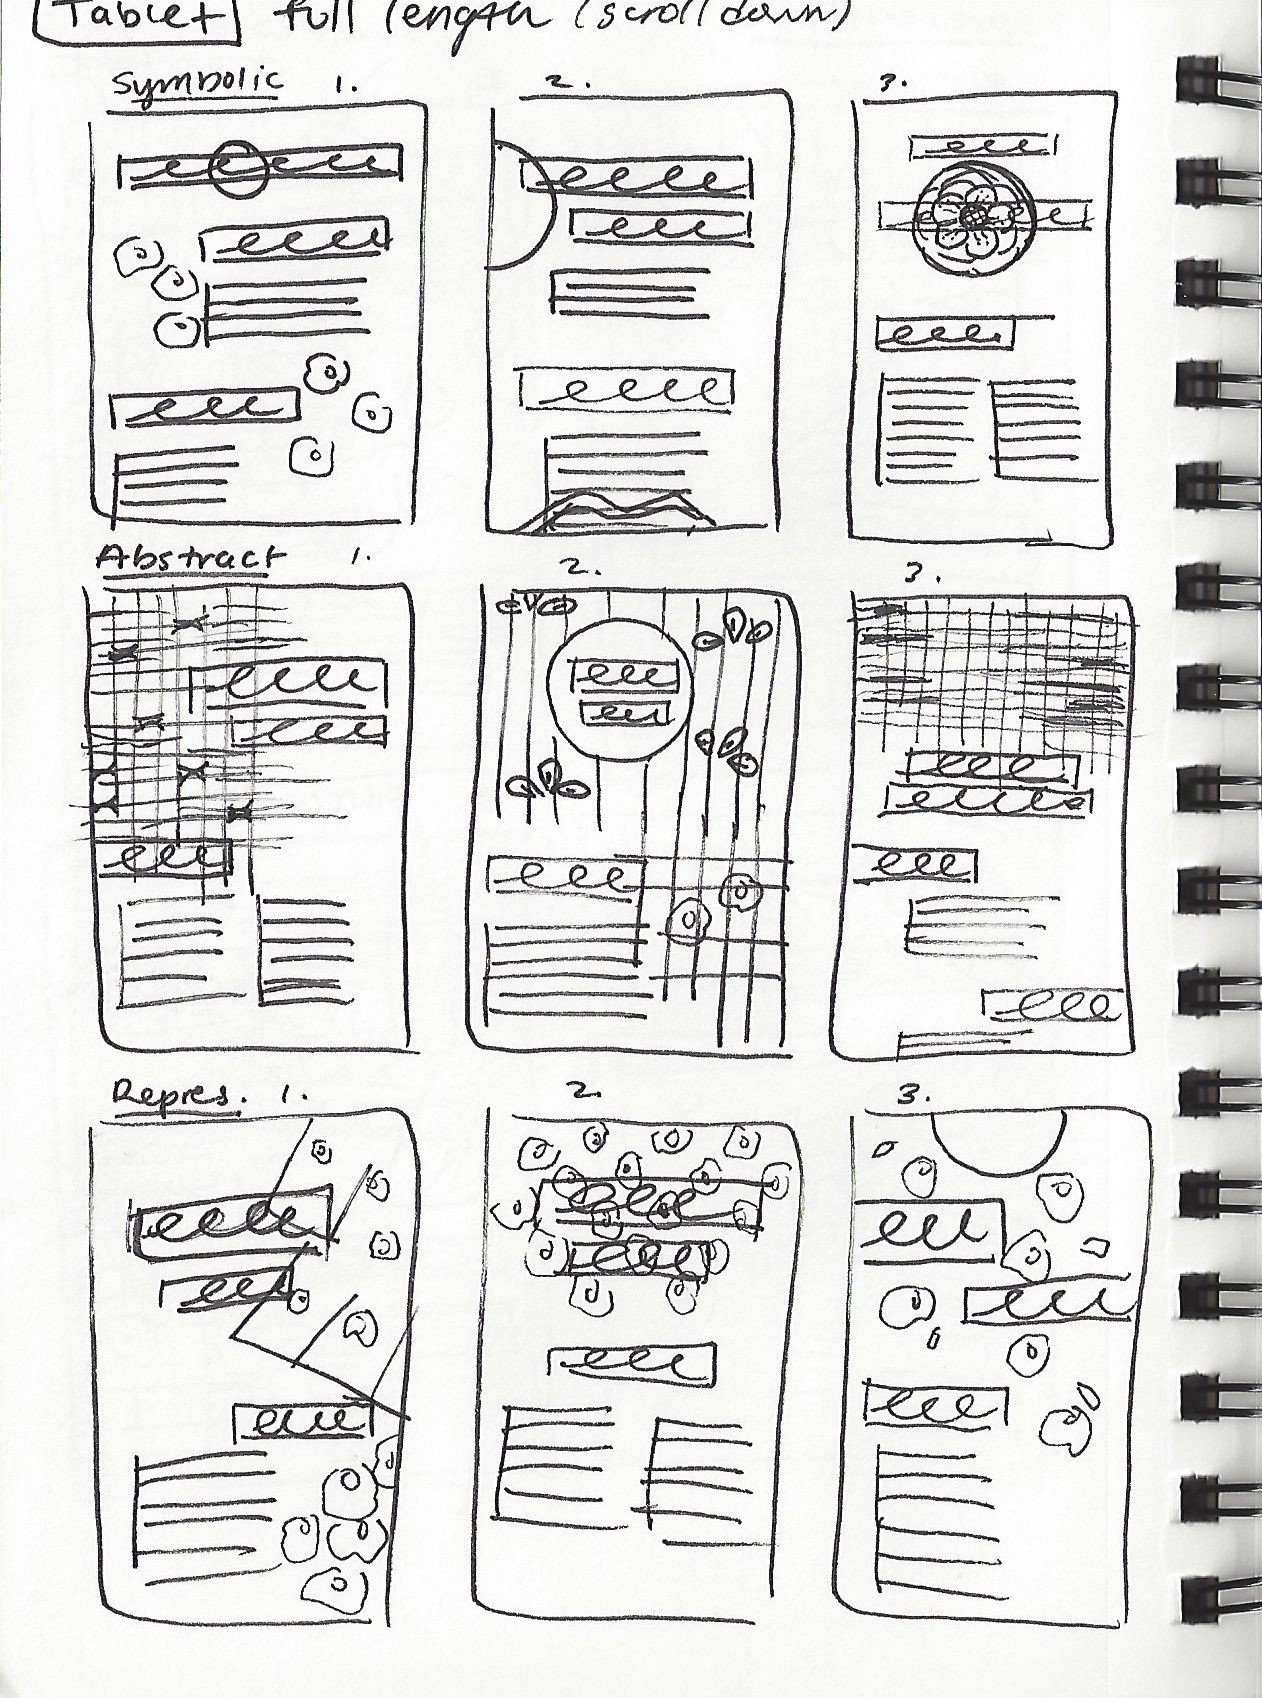 Tablet full length (scroll down)
Symbolic 1. 2. 3.
Abstract 1. 2. 3.
Repres. 1. 2. 3.